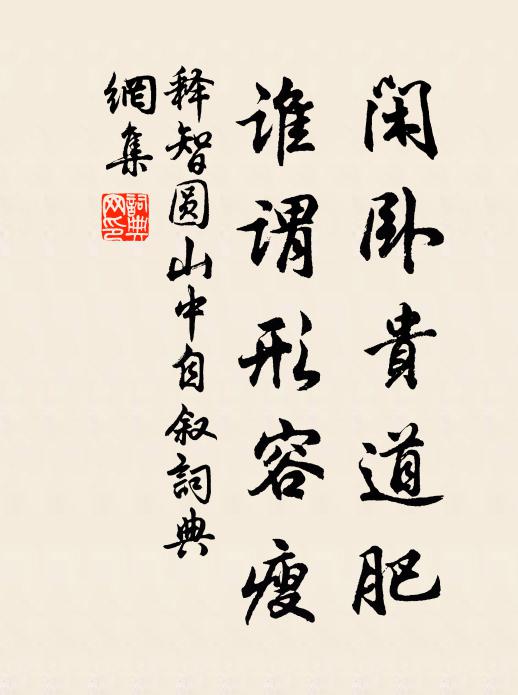 闲卧貴道肥
谁謂形容瘦
释智圆山中自叙詞典
網集
詞典
网印